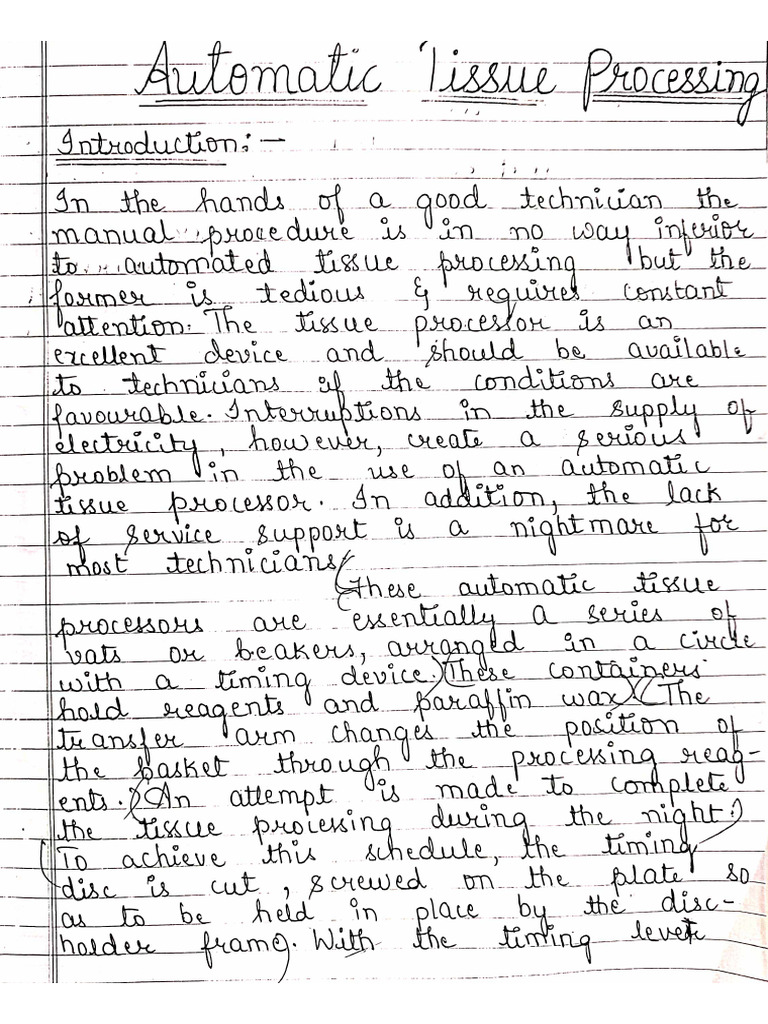 Automatic Tissue Processing
Introduction:-
In the hands of a good technician the
manual procedure is in no way inferior
to automated tissue processing but the
former is tedious & requires constant
attention. The tissue processor is an
excellent device and should be available
to technicians if the conditions are
favourable. Interruptions in the supply of
electricity, however, create a serious
problem in the use of an automatic
tissue processor. In addition, the lack
of service support is a nightmare for
most technicians.
(These automatic tissue
processors are essentially a series of
vats or beakers, arranged in a circle
with a timing device.) (These containers
hold reagents and paraffin wax) (The
transfer arm changes the position of
the basket through the processing reag-
ents.) (An attempt is made to complete
the tissue processing during the night.)
(To achieve this schedule, the timing
disc is cut, screwed on the plate so
as to be held in place by the disc-
holder frame). With the timing lever